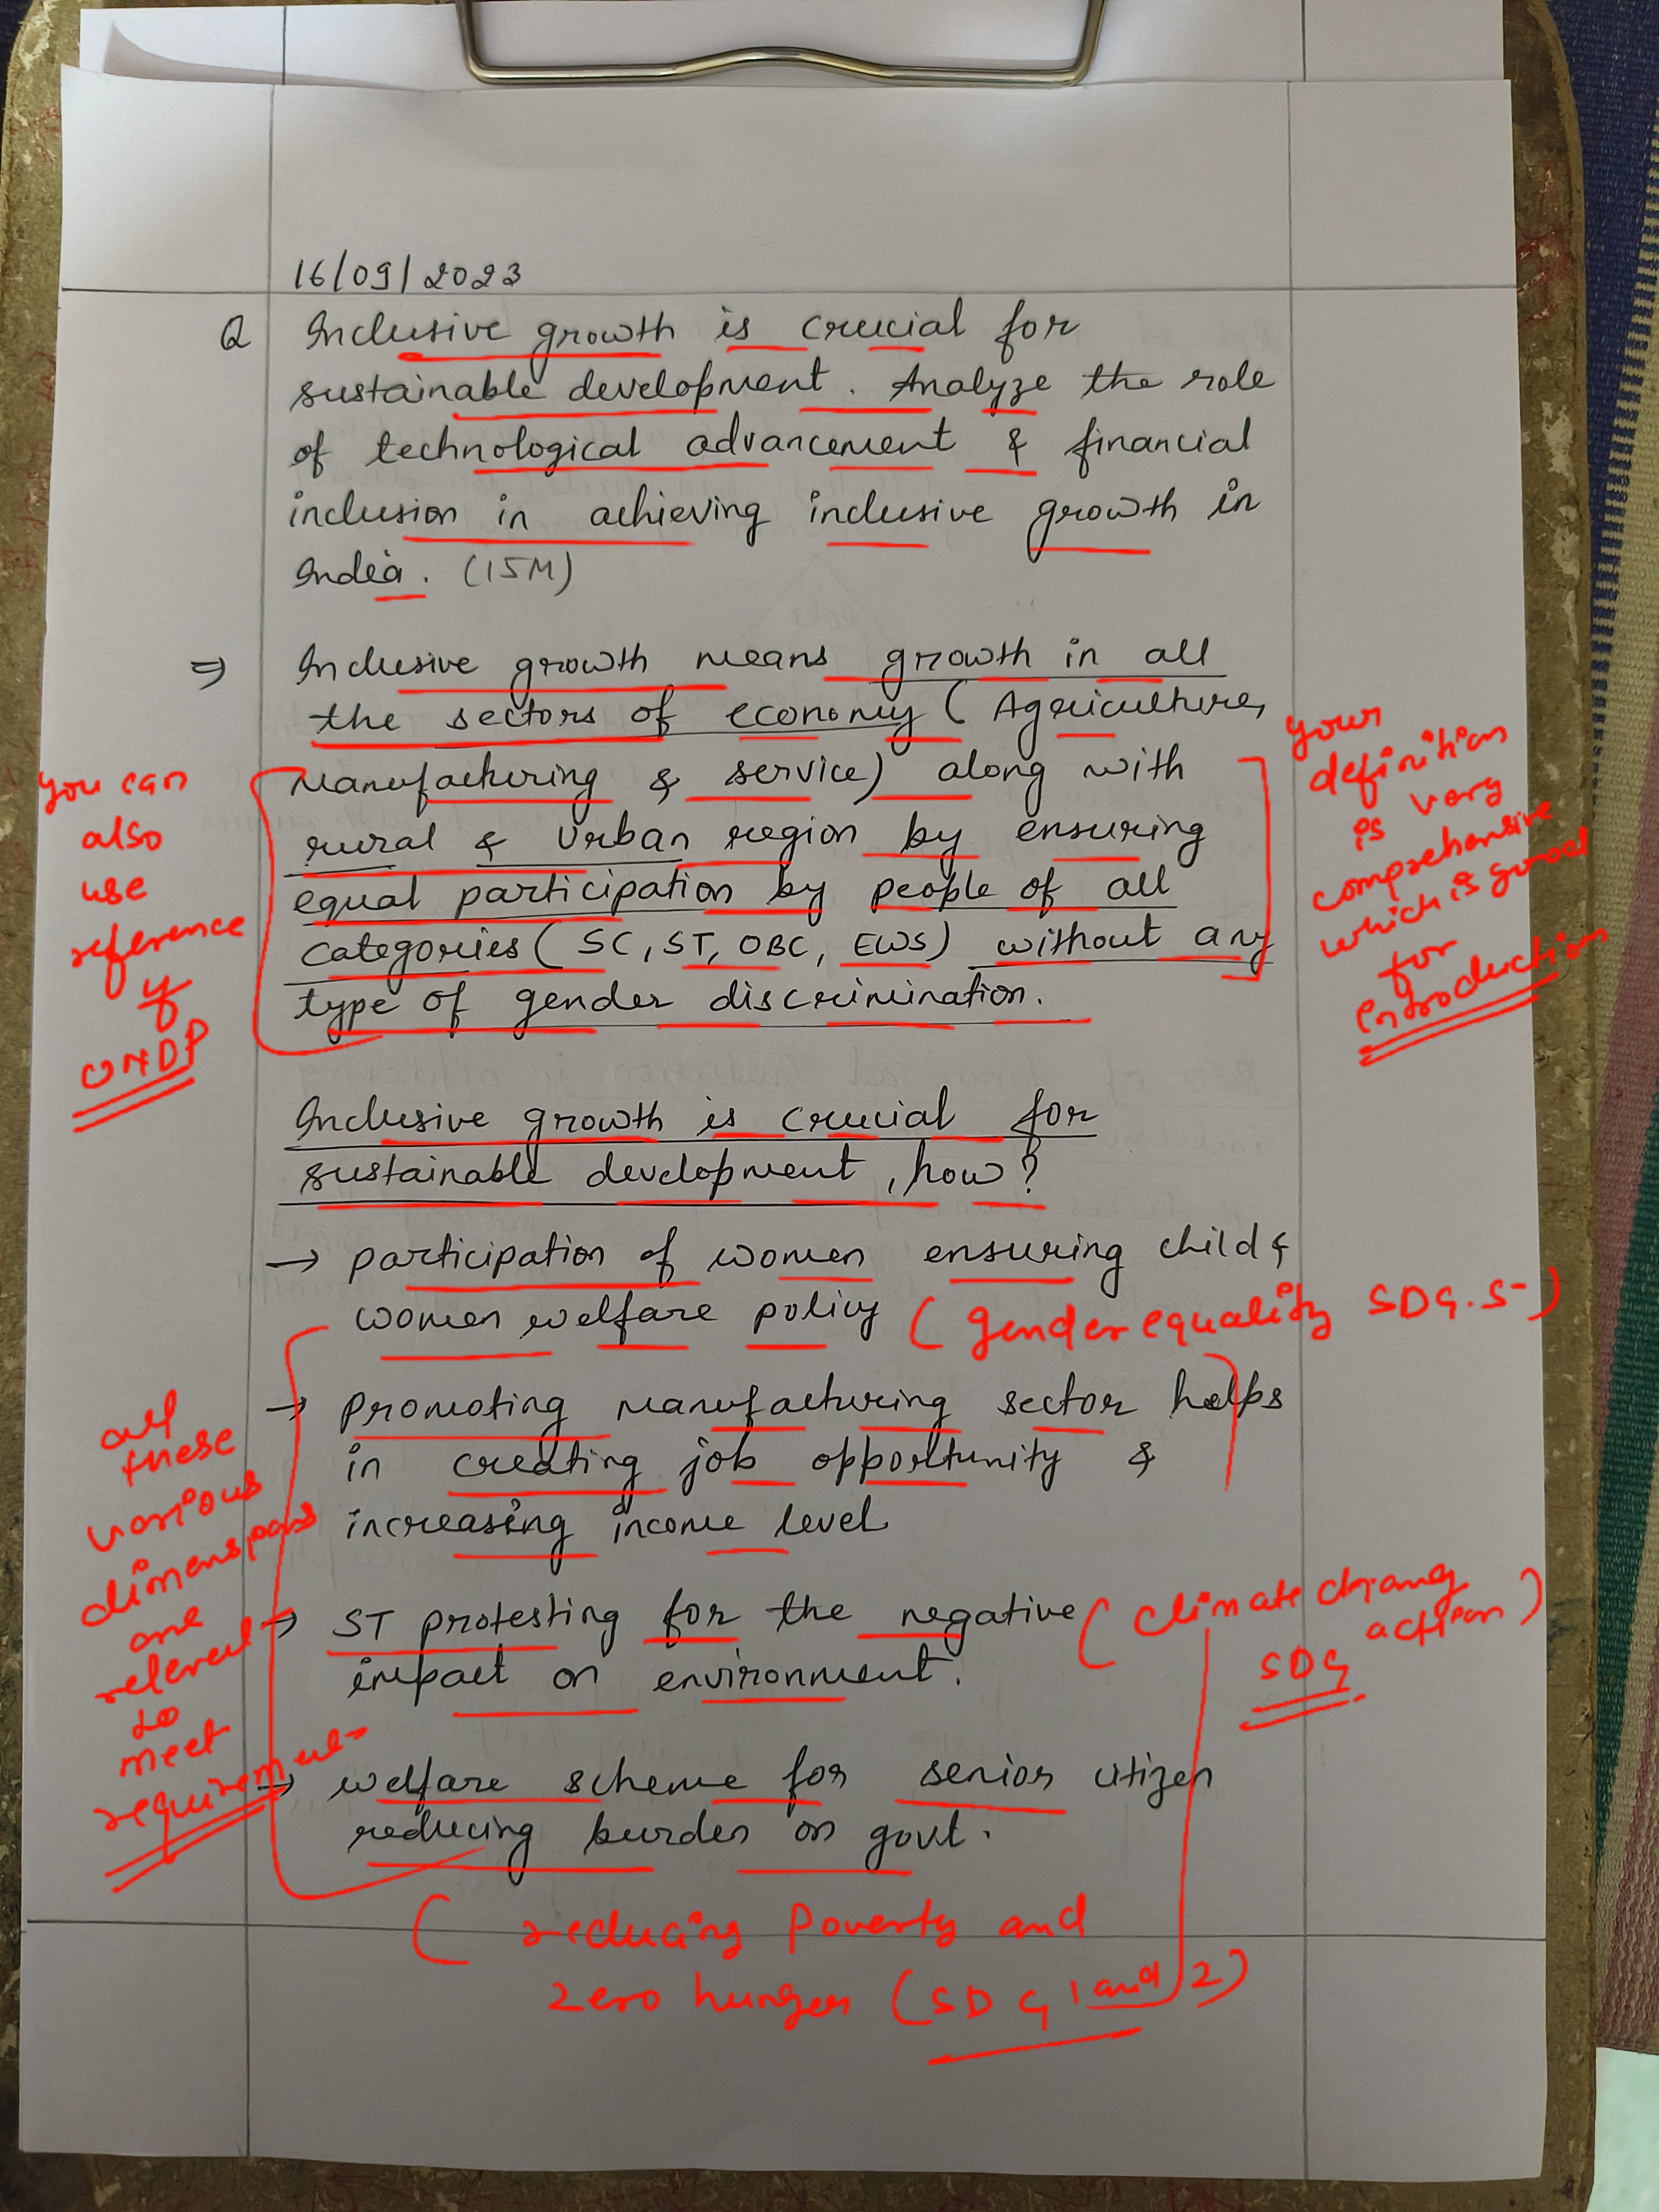 16/09/2023
Q Inclusive growth is crucial for
sustainable development. Analyze the role
of technological advancement & financial
inclusion in achieving inclusive growth in
India. (15M)
⇒ Inclusive growth means growth in all
the sectors of economy (Agriculture,
Manufacturing & service) along with
rural & Urban region by ensuring
equal participation by people of all
categories (SC, ST, OBC, EWS) without any
type of gender discrimination.
you can
also
use
reference
of
UNDP
your
definition
is very
comprehensive
which is good
for
introduction
Inclusive growth is crucial for
sustainable development, how?
→ participation of women ensuring child &
women welfare policy (gender equality SDG.5)
→ Promoting manufacturing sector helps
in creating job opportunity &
increasing income level
→ ST protesting for the negative (climate chang
action)
SDG
impact on environment.
→ welfare scheme for senior citizen
reducing burden on govt.
all
these
various
dimensions
are
relevent
to
meet
requirement
( reducing Poverty and
zero hunger (SDG 1 and 2)